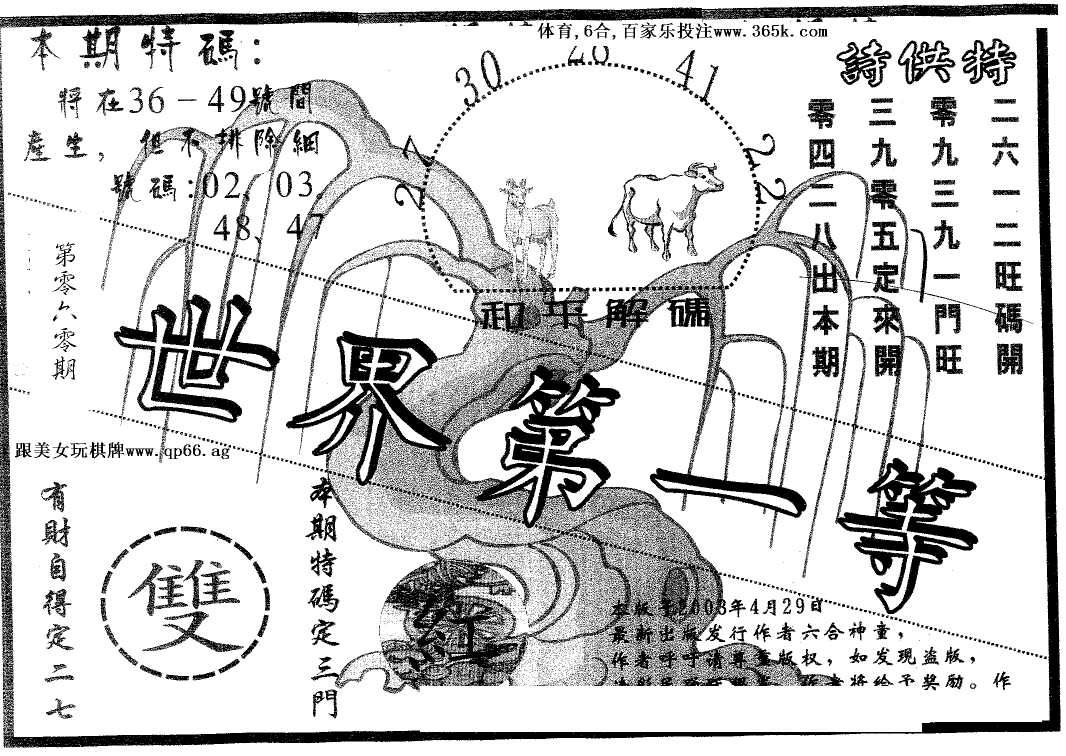 体育,6合,百家乐投注www.365k.com
本期特碼:
將在36-49號間
產生,但不排除細
號碼:02、03、
48、47
30
41
22
22
詩供特
二六一二旺碼開
零九三九一門旺
三九零五定來開
零四二八出本期
和平解碼
第零六零期
世界第一等
跟美女玩棋牌www.qp66.ag
有財自得定二七
雙
本期特碼定三門
紅
本版于2003年4月29日
最新出版发行作者六合神童,
作者呼吁请尊重版权,如发现盗版,
作者将给予奖励。作